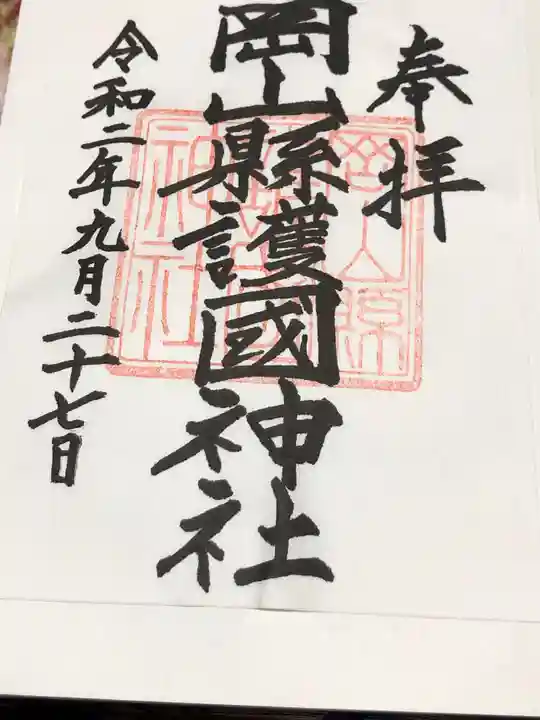 奉拝
岡山縣護國神社
令和二年九月二十七日
岡山縣
護國
神社